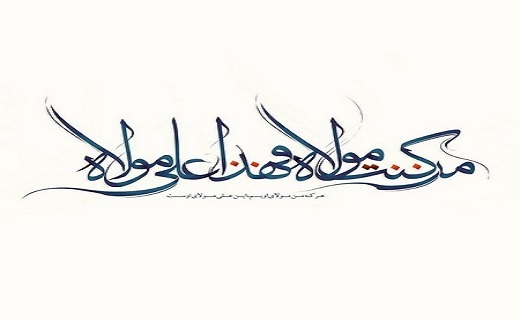 من کنت مولاه فهذا علی مولاه
هر که من مولای اویم این علی مولای اوست